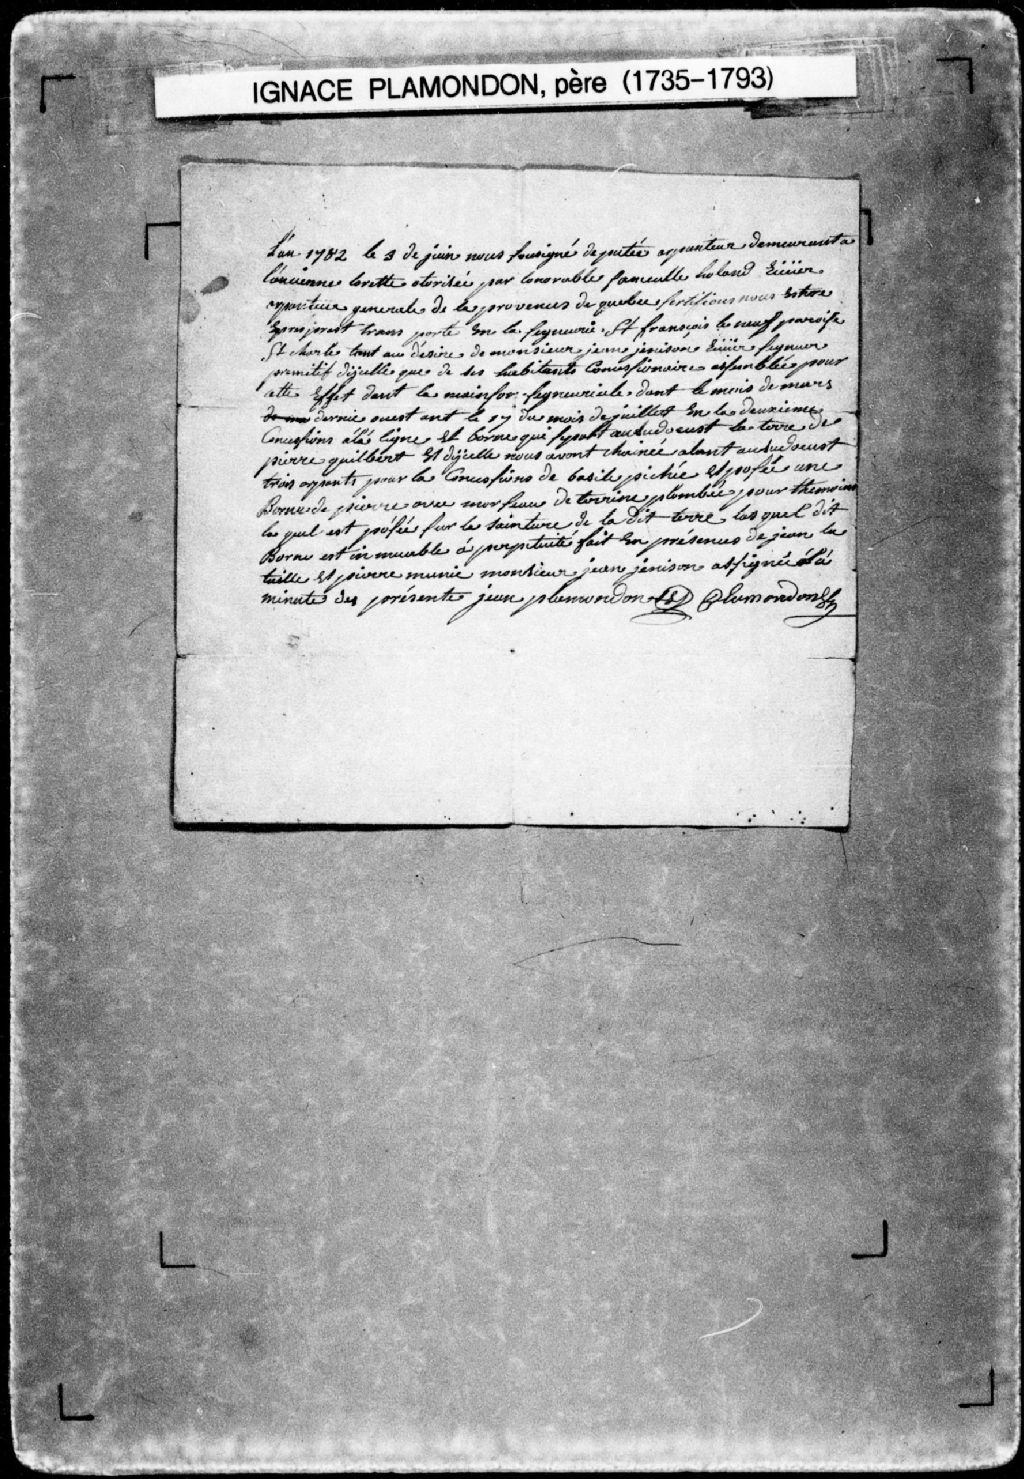 IGNACE PLAMONDON, père (1735-1793)
L'an 1782 le 3 de juin nous sousigné deputée arpanteur demeurant a
l'ancienne lorette otorisée par lonorable sameulle holand
generale de la provences de quebec sertifions nous Estre
Expres trans porté En la segneurie St françois le neuf paroise
St charle tant au désire de monsieur jean jenison segneur
premitif dijelle que de ses habitants Concessionaire assemblée pour
Effet dant la mainfor segneuriale dant le mois de mars
dernie ouest ant le du mois de juillet En la deuxieme
Concessions à la ligne Et borne qui la terre de
pierre guilbert Et dijelle nous avont chainée alant au sudouest
trois arpants pour la Concessions de basile pichée Et posée une
Borne de pierre avec morseau de terrine plombée pour themoins
la quel est posée sur la sainture de la dit terre las quel dit
Borne est inmuable à perpetuité fait En présences de jean la
taille Et pierre munie monsieur jean jenison assignée à la
minute des présente jean plamondon Plamondon